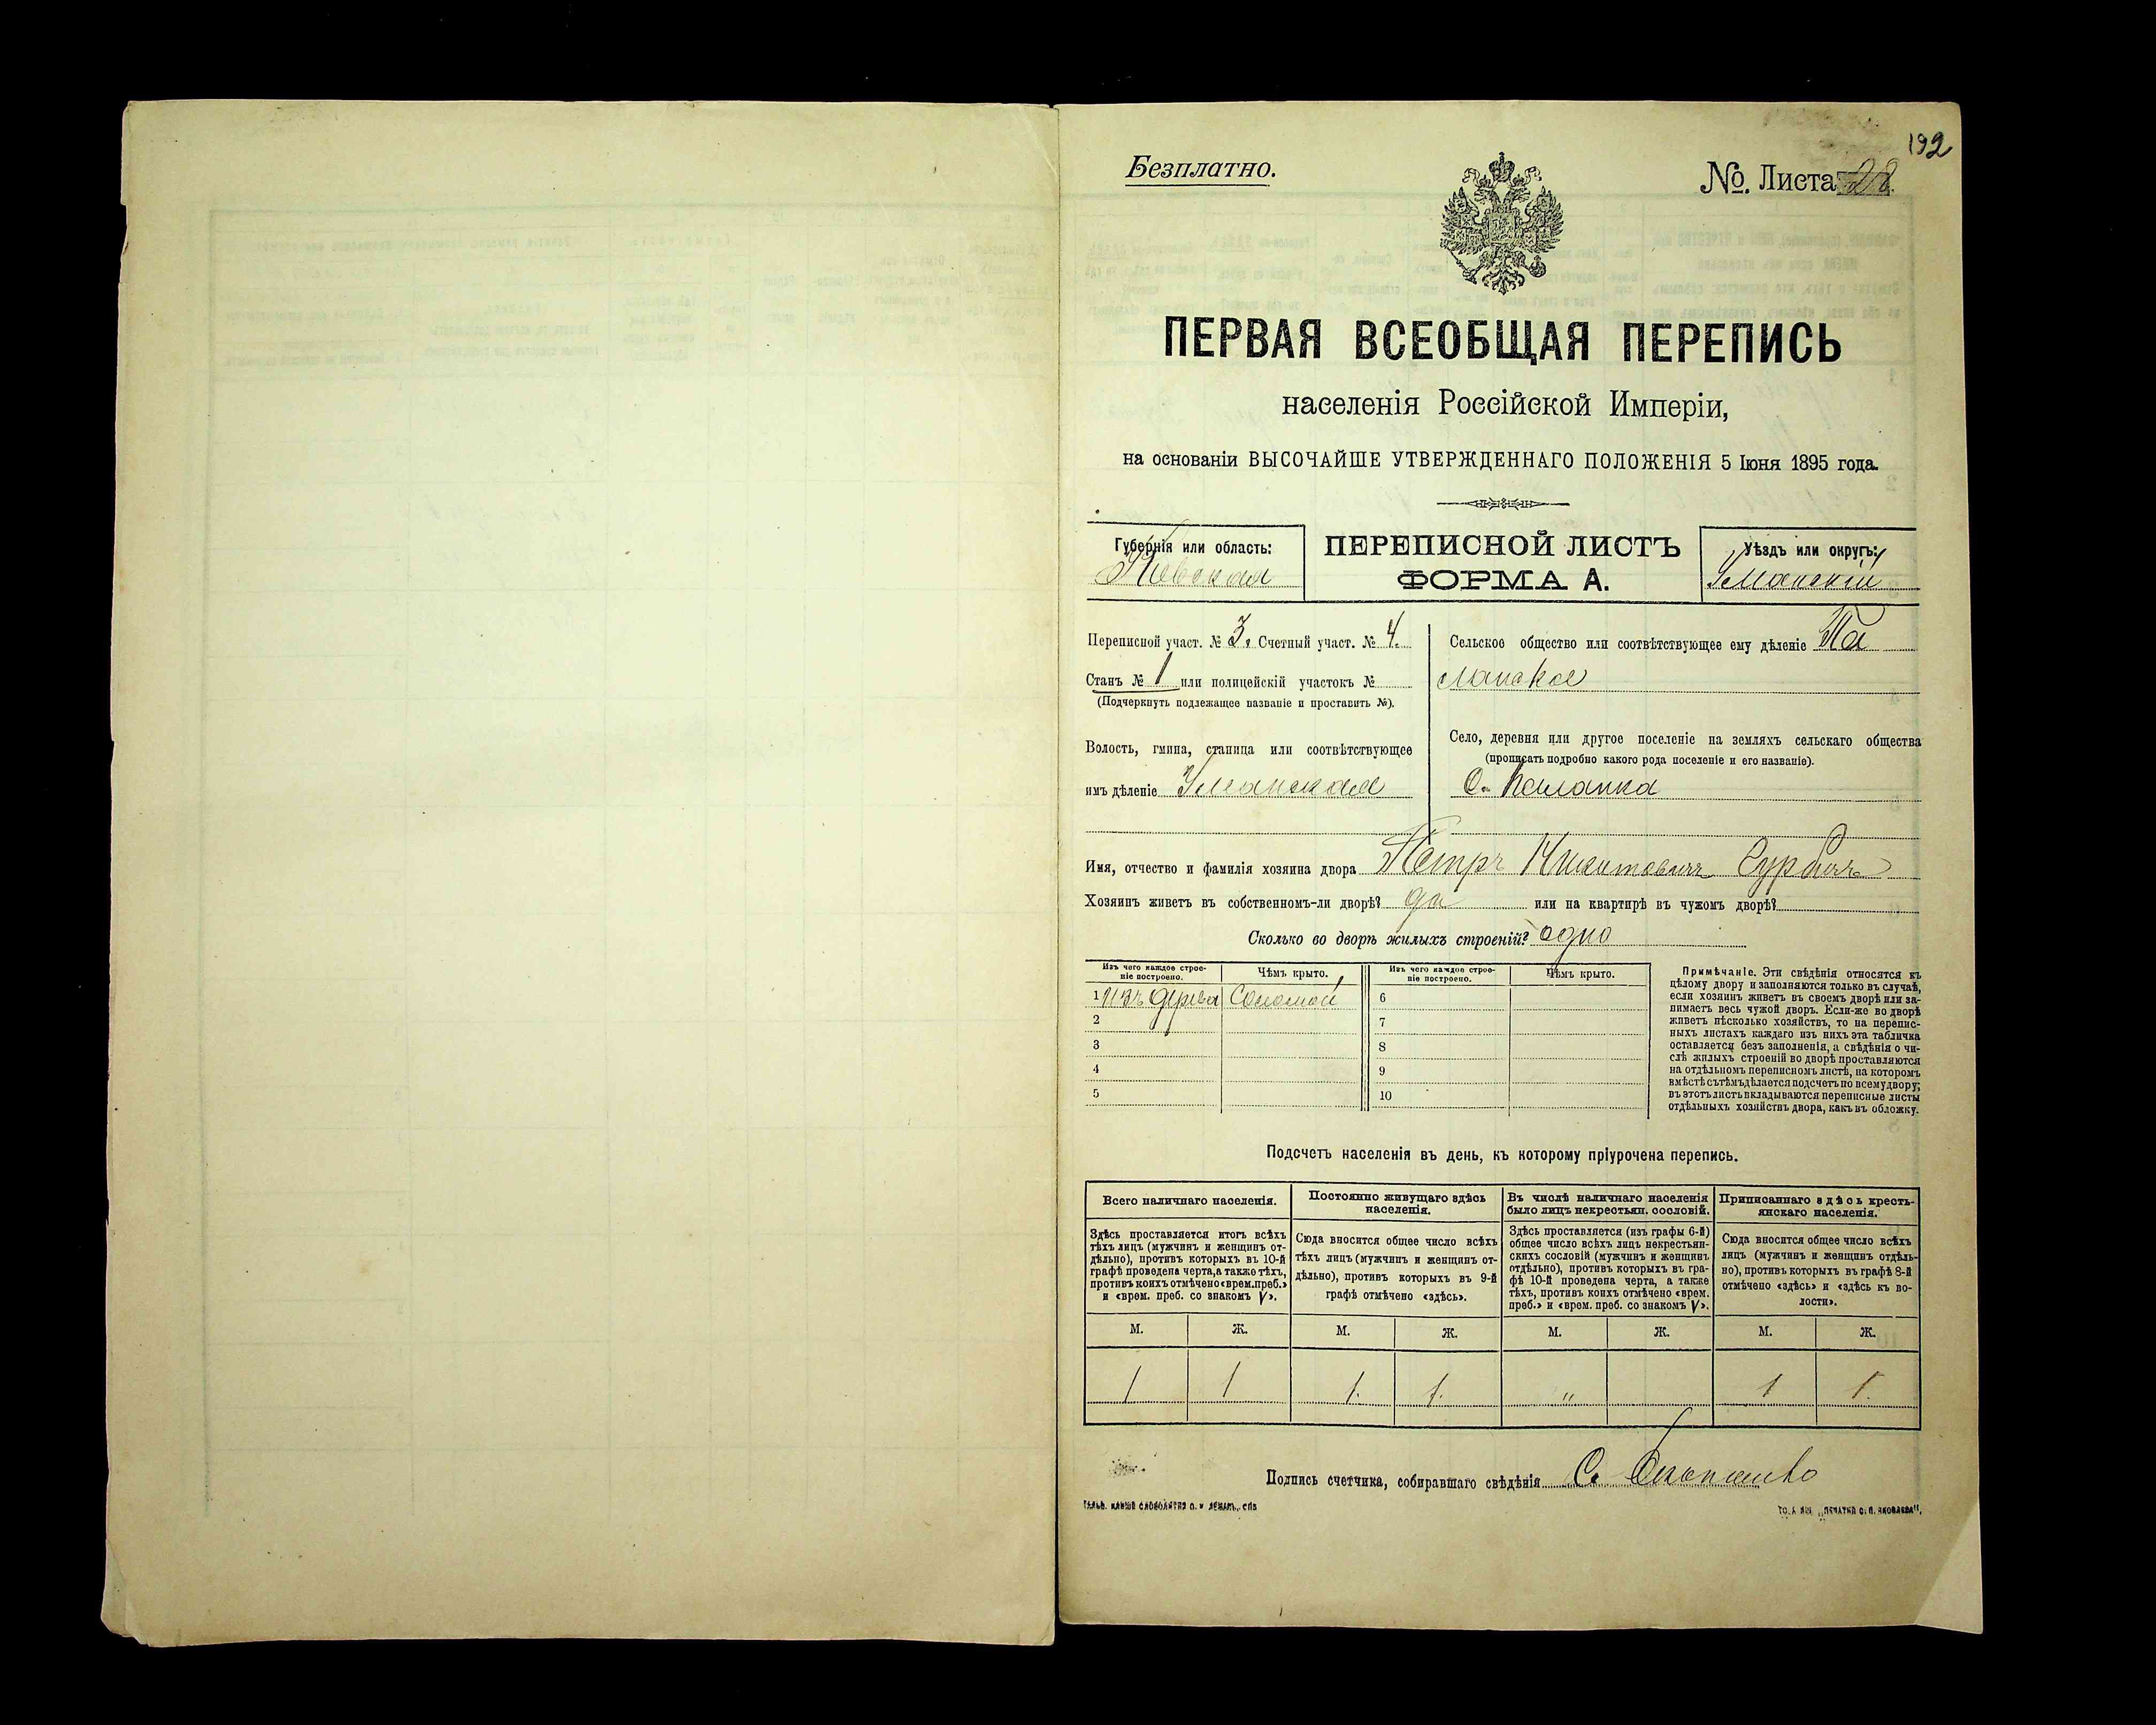 192
Безплатно.
№. Листа 28.
ПЕРВАЯ ВСЕОБЩАЯ ПЕРЕПИСЬ
населенія Россійской Имперіи,
на основаніи ВЫСОЧАЙШЕ УТВЕРЖДЕННАГО ПОЛОЖЕНІЯ 5 Іюня 1895 года.
Губернія или область:
Кіевская
ПЕРЕПИСНОЙ ЛИСТЪ
ФОРМА А.
Уѣздъ или округъ:
Уманскій
Переписной участ. № 3. Счетный участ. № 4.
Станъ № 1 или полицейскій участокъ №
(Подчеркнуть подлежащее названіе и проставить №).
Волость, гмина, станица или соотвѣтствующее
имъ дѣленіе Уманская
Сельское общество или соотвѣтствующее ему дѣленіе Па
ланское
Село, деревня или другое поселеніе на земляхъ сельскаго общества
(прописать подробно какого рода поселеніе и его названіе).
С. Паланка
Имя, отчество и фамилія хозяина двора Петръ Никитовичъ
Хозяинъ живетъ въ собственномъ-ли дворѣ? да или на квартирѣ въ чужомъ дворѣ?
Сколько во дворѣ жилыхъ строеній? одно
Изъ чего каждое строе-
ніе построено.
Чѣмъ крыто.
Изъ чего каждое строе-
ніе построено.
Чѣмъ крыто.
1 изъ дерева Соломой
2
3
4
5
6
7
8
9
10
Примѣчаніе. Эти свѣдѣнія относятся къ
цѣлому двору и заполняются только въ случаѣ,
если хозяинъ живетъ въ своемъ дворѣ или за-
нимаетъ весь чужой дворъ. Если-же во дворѣ
живетъ нѣсколько хозяйствъ, то на перепис-
ныхъ листахъ каждаго изъ нихъ эта табличка
оставляется безъ заполненія, а свѣдѣнія о чи-
слѣ жилыхъ строеній во дворѣ проставляются
на отдѣльномъ переписномъ листѣ, на которомъ
вмѣстѣ съ тѣмъ дѣлается подсчетъ по всему двору;
въ этотъ листъ вкладываются переписные листы
отдѣльныхъ хозяйствъ двора, какъ въ обложку.
Подсчетъ населенія въ день, къ которому пріурочена перепись.
Всего наличнаго населенія.
Здѣсь проставляется итогъ всѣхъ
тѣхъ лицъ (мужчинъ и женщинъ от-
дѣльно), противъ которыхъ въ 10-й
графѣ проведена черта, а также тѣхъ,
противъ коихъ отмѣчено «врем. преб.»
и «врем. преб. со знакомъ V».
Постоянно живущаго здѣсь
населенія.
Сюда вносится общее число всѣхъ
тѣхъ лицъ (мужчинъ и женщинъ от-
дѣльно), противъ которыхъ въ 9-й
графѣ отмѣчено «здѣсь».
Въ числѣ наличнаго населенія
было лицъ некрестьян. сословій.
Здѣсь проставляется (изъ графы 6-й)
общее число всѣхъ лицъ некрестьян-
скихъ сословій (мужчинъ и женщинъ
отдѣльно), противъ которыхъ въ гра-
фѣ 10-й проведена черта, а также
тѣхъ, противъ коихъ отмѣчено «врем.
преб.» и «врем. преб. со знакомъ V».
Приписаннаго здѣсь кресть-
янскаго населенія.
Сюда вносится общее число всѣхъ
лицъ (мужчинъ и женщинъ отдѣль-
но), противъ которыхъ въ графѣ 8-й
отмѣчено «здѣсь» и «здѣсь къ во-
лости».
М. Ж. М. Ж. М. Ж. М. Ж.
1 1 1. 1. " 1 1.
Подпись счетчика, собиравшаго свѣдѣнія С.